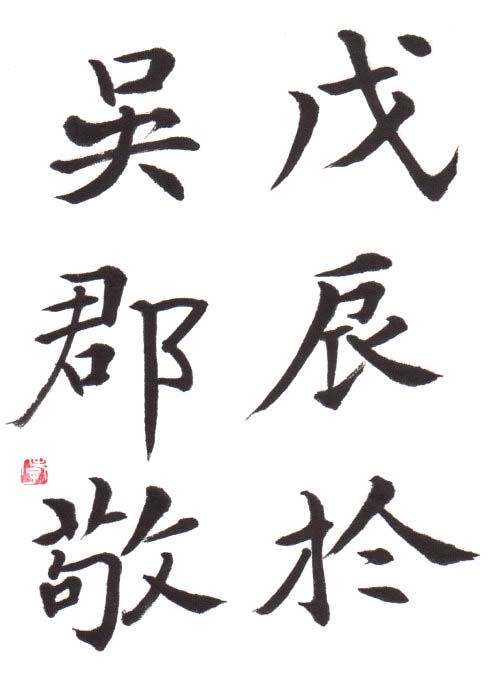 戊辰於
吳郡敬